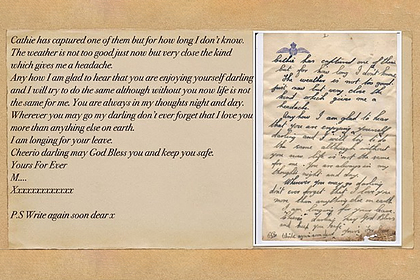 Cathie has captured one of them but for how long I don't know.
The weather is not too good just now but very close the kind
which gives me a headache.
Any how I am glad to hear that you are enjoying yourself darling
and I will try to do the same although without you now life is not
the same for me. You are always in my thoughts night and day.
Wherever you may go my darling don't ever forget that I love you
more than anything else on earth.
I am longing for your leave.
Cheerio darling may God Bless you and keep you safe.
Yours For Ever
M....
Xxxxxxxxxxxxx
P.S Write again soon dear x
Cathie has captured one of them
but for how long I don't know
The weather is not too good
just now but very close the
kind which gives me a
headache.
Any how I am glad to hear
that you are enjoying yourself
darling and I will try to do
the same although without
you now life is not the same
for me. You are always in my
thoughts night and day.
Wherever you may go darling
don't ever forget that I love you
more than anything else on earth
I am longing for your leave
Cheerio darling may God Bless
and keep you safe